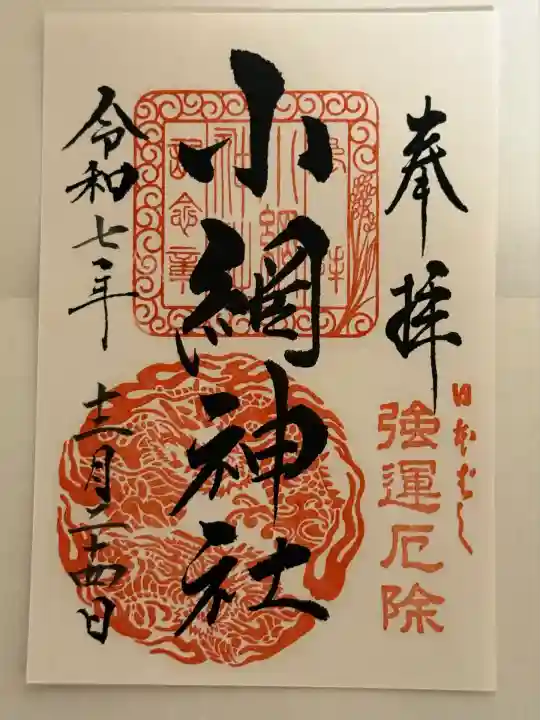 奉拝
日本ばし
強運厄除
小網神社
令和七年 十二月二十四日